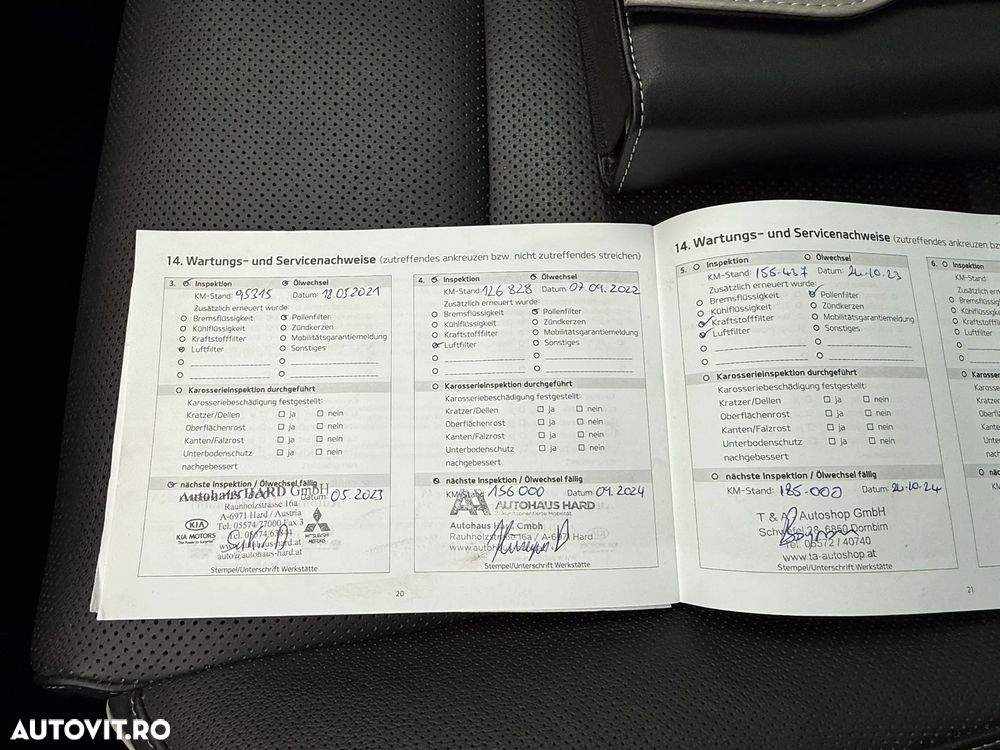 14. Wartungs- und Servicenachweise (zutreffendes ankreuzen bzw. nicht zutreffendes streichen)
3. Inspektion Ölwechsel
KM-Stand: 95315 Datum: 18.05.2021
Zusätzlich erneuert wurde:
Bremsflüssigkeit Pollenfilter
Kühlflüssigkeit Zündkerzen
Kraftstofffilter Mobilitätsgarantiemeldung
Luftfilter Sonstiges
Karosserieinspektion durchgeführt
Karosseriebeschädigung festgestellt:
Kratzer/Dellen ja nein
Oberflächenrost ja nein
Kanten/Falzrost ja nein
Unterbodenschutz ja nein
nachgebessert
nächste Inspektion / Ölwechsel fällig
Autohaus HARD GmbH
Datum: 05.2023
Rauhholzstrasse 16a
A-6971 Hard / Austria
Tel. 05574/77000 Fax 3
Tel. 05574/63841
www.autohaus-hard.at
auto@autohaus-hard.at
KIA
KIA MOTORS
The Power to Surprise
MITSUBISHI
MOTORS
Stempel/Unterschrift Werkstätte
4. Inspektion Ölwechsel
KM-Stand: 126 828 Datum: 07.09.2022
Zusätzlich erneuert wurde:
Bremsflüssigkeit Pollenfilter
Kühlflüssigkeit Zündkerzen
Kraftstofffilter Mobilitätsgarantiemeldung
Luftfilter Sonstiges
Karosserieinspektion durchgeführt
Karosseriebeschädigung festgestellt:
Kratzer/Dellen ja nein
Oberflächenrost ja nein
Kanten/Falzrost ja nein
Unterbodenschutz ja nein
nachgebessert
nächste Inspektion / Ölwechsel fällig
KM-Stand: 156 000 Datum: 09.2024
AUTOHAUS HARD
Zukunftsorientierte Mobilität
Autohaus Hard Gmbh
Rauhholzstrasse 16a / A-6971 Hard
Stempel/Unterschrift Werkstätte
20
14. Wartungs- und Servicenachweise (zutreffendes ankreuzen bzw.
5. Inspektion Ölwechsel
KM-Stand: 155-437 Datum: 24.10.23
Zusätzlich erneuert wurde:
Bremsflüssigkeit Pollenfilter
Kühlflüssigkeit Zündkerzen
Kraftstofffilter Mobilitätsgarantiemeldung
Luftfilter Sonstiges
Karosserieinspektion durchgeführt
Karosseriebeschädigung festgestellt:
Kratzer/Dellen ja nein
Oberflächenrost ja nein
Kanten/Falzrost ja nein
Unterbodenschutz ja nein
nachgebessert
nächste Inspektion / Ölwechsel fällig
KM-Stand: 185-000 Datum: 24.10.24
T & A Autoshop GmbH
28-6850 Dornbirn
Tel. 05572 / 40740
www.ta-autoshop.at
Stempel/Unterschrift Werkstätte
6. Inspektion
KM-Stand:
Zusätzlich ern
Bremsflüssig
Kühlflüssigk
Kraftstofffilt
Luftfilter
Karosser
Karosserie
Kratzer/D
Oberfläch
Kanten/
Unterbod
nachgeb
nächst
KM-S
21
AUTOVIT.RO